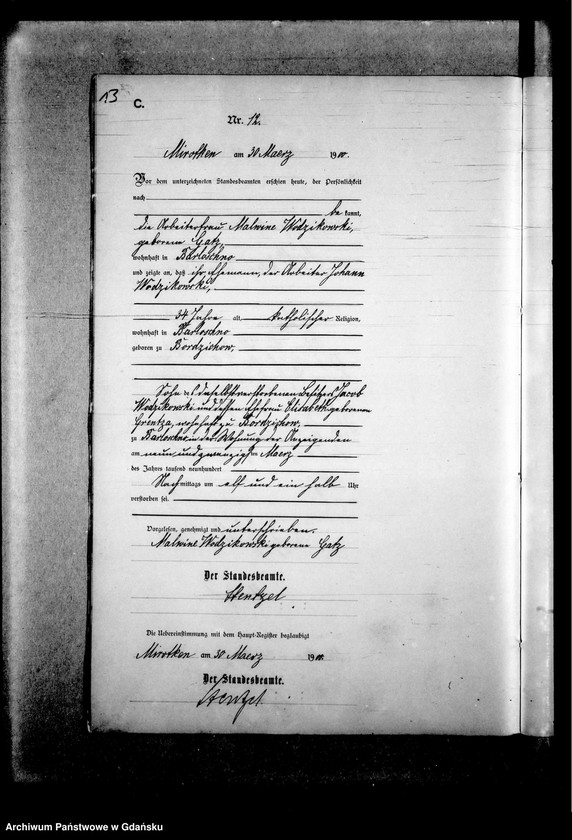 13
C.
Nr. 12.
Mirotken am 30 Maerz 1900.
Vor dem unterzeichneten Standesbeamten erschien heute, der Persönlichkeit
nach
be kannt,
die Arbeiterfrau Malwine Wodzikowski,
geborene Gatz,
wohnhaft in Bartoschno
und zeigte an, daß ihr Ehemann, der Arbeiter Johann
Wodzikowski,
34 Jahre alt, katholischer Religion,
wohnhaft in Bartoschno
geboren zu Bordzichow,
Sohn des daselbst verstorbenen Besitzers Jacob
Wodzikowski und dessen Ehefrau Elisabeth geborenen
Crentza, wohnhaft zu Bordzichow,
zu Bartoschno in der Wohnung der Anzeigenden
am neun und zwanzigsten Maerz
des Jahres tausend neunhundert
Nachmittags um elf und ein halb Uhr
verstorben sei.
Vorgelesen, genehmigt und unterschrieben.
Malwine Wodzikowski geborene Gatz
Der Standesbeamte.
Stentzel
Die Uebereinstimmung mit dem Haupt-Register beglaubigt
Mirotken am 30 Maerz 1900.
Der Standesbeamte.
Stentzel.
Archiwum Państwowe w Gdańsku